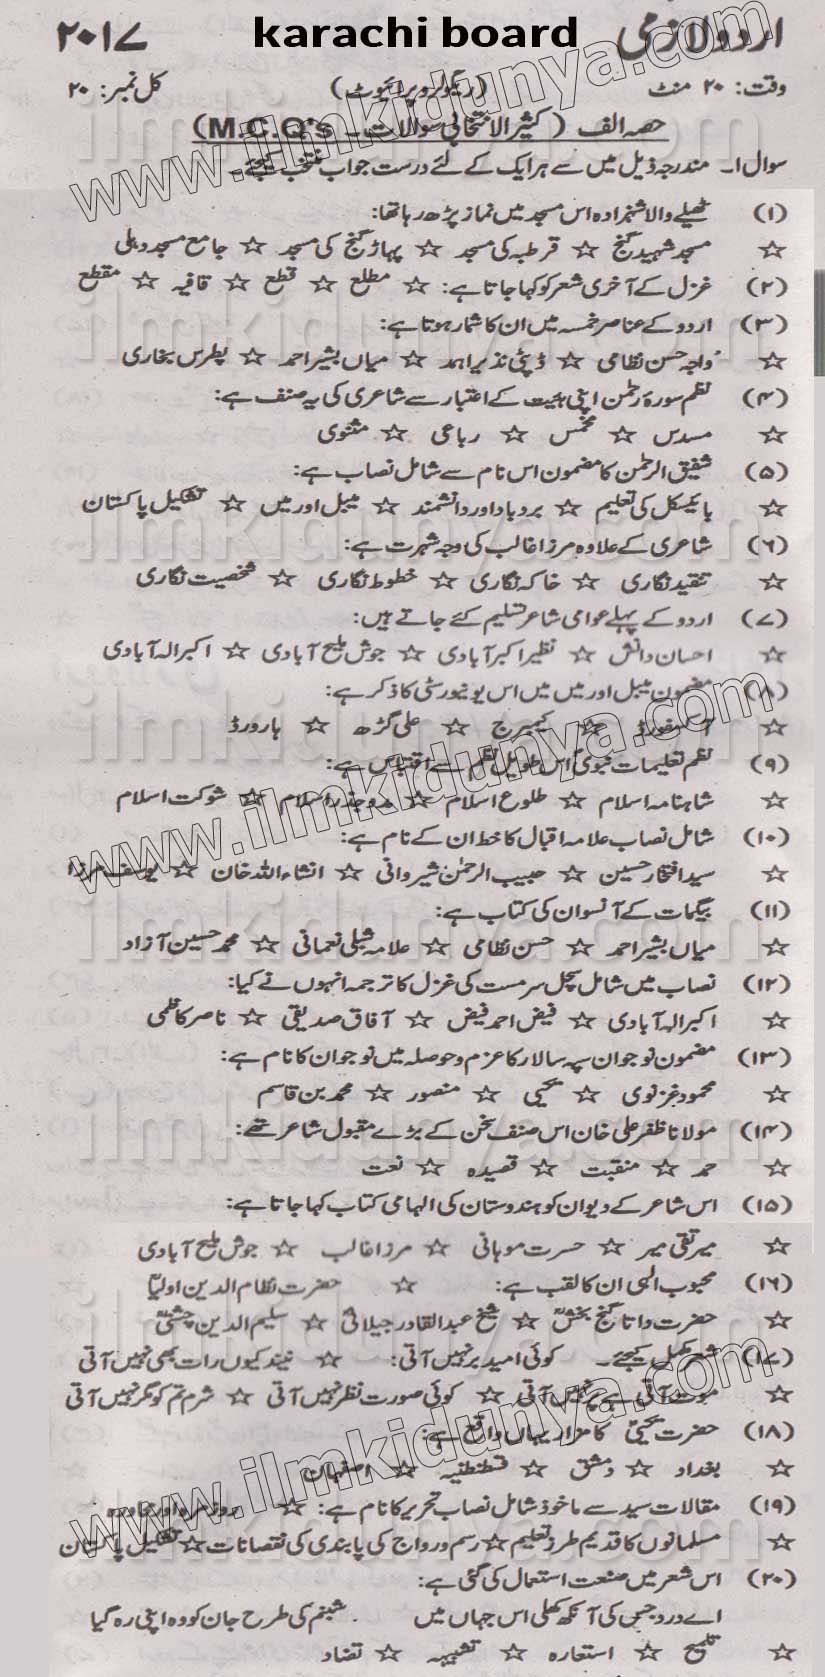 اردو لازمی karachi board ۲۰۱۷
وقت: ۲۰ منٹ (ریگولر و پرائیوٹ) کل نمبر: ۲۰
حصہ الف (کثیر الانتخابی سوالات۔ M.C.Q's)
سوال ۱۔ مندرجہ ذیل میں سے ہر ایک کے لئے درست جواب منتخب کیجئے۔
(۱) ٹھیلے والا شہزادہ اس مسجد میں نماز پڑھ رہا تھا:
☆ مسجد شہید گنج ☆ قرطبہ کی مسجد ☆ پہاڑ گنج کی مسجد ☆ جامع مسجد دہلی
(۲) غزل کے آخری شعر کو کہا جاتا ہے: ☆ مطلع ☆ قطع ☆ قافیہ ☆ مقطع
(۳) اردو کے عناصر خمسہ میں ان کا شمار ہوتا ہے:
☆ واجہ حسن نظامی ☆ ڈپٹی نذیر اہمد ☆ میاں بشیر احمد ☆ پطرس بخاری
(۴) نظم سورۃ رحمٰن اپنی ہیت کے اعتبار سے شاعری کی یہ صنف ہے:
☆ مسدس ☆ مخمس ☆ رباعی ☆ مثنوی
(۵) شفیق الرحمٰن کا مضمون اس نام سے شامل نصاب ہے:
☆ بائیسکل کی تعلیم ☆ بردباد اور دانشمند ☆ میبل اور میں ☆ تشکیل پاکستان
(۶) شاعری کے علاوہ مرزا غالب کی وجہ شہرت ہے:
☆ تنقید نگاری ☆ خاکہ نگاری ☆ خطوط نگاری ☆ شخصیت نگاری
(۷) اردو کے پہلے عوامی شاعر تسلیم کئے جاتے ہیں:
☆ احسان دانش ☆ نظیر اکبر آبادی ☆ جوش ملیح آبادی ☆ اکبر الہ آبادی
(۸) مضمون میبل اور میں میں اس یونیورسٹی کا ذکر ہے:
☆ آکسفورڈ ☆ کیمبرج ☆ علی گڑھ ☆ ہارورڈ
(۹) نظم تعلیمات نبوی اس طویل نظم سے اقتباس ہے:
☆ شاہنامہ اسلام ☆ طلوع اسلام ☆ مدوجذر اسلام ☆ شوکت اسلام
(۱۰) شامل نصاب علامہ اقبال کا خط ان کے نام ہے:
☆ سید افتخار حسین ☆ حبیب الرحمٰن شیروانی ☆ انشاء اللہ خان ☆ یوسف مرزا
(۱۱) بیگمات کے آنسو ان کی کتاب ہے:
☆ میاں بشیر احمد ☆ حسن نظامی ☆ علامہ شبلی نعمانی ☆ محمد حسین آزاد
(۱۲) نصاب میں شامل سچل سرمست کی غزل کا ترجمہ انہوں نے کیا:
☆ اکبر الہ آبادی ☆ فیض احمد فیض ☆ آفاق صدیقی ☆ ناصر کاظمی
(۱۳) مضمون نوجوان سپہ سالار کا عزم و حوصلہ میں نوجوان کا نام ہے:
☆ محمود غزنوی ☆ یحییٰ ☆ منصور ☆ محمد بن قاسم
(۱۴) مولانا ظفر علی خان اس صنف سخن کے بڑے مقبول شاعر تھے:
☆ حمد ☆ منقبت ☆ قصیدہ ☆ نعت
(۱۵) اس شاعر کے دیوان کو ہندوستان کی الہامی کتاب کہا جاتا ہے:
☆ میر تقی میر ☆ حسرت موہانی ☆ مرزا غالب ☆ جوش ملیح آبادی
(۱۶) محبوب الٰہی ان کا لقب ہے: ☆ حضرت نظام الدین اولیاؒ
☆ حضرت داتا گنج بخشؒ ☆ شیخ عبدالقادر جیلانیؒ ☆ سلیم الدین چشتیؒ
(۱۷) شعر مکمل کیجئے۔ کوئی امید بر نہیں آتی: ☆ نیند کیوں رات بھی نہیں آتی
☆ موت آتی ہے پر نہیں آتی ☆ کوئی صورت نظر نہیں آتی ☆ شرم تم کو مگر نہیں آتی
(۱۸) حضرت یحییٰؑ کا مزار یہاں واقع ہے:
☆ بغداد ☆ دمشق ☆ قسطنطنیہ ☆ اصفہان
(۱۹) مقالات سید سے ماخوذ شامل نصاب تحریر کا نام ہے: ☆ روزمرہ اور محاورہ
☆ مسلمانوں کا قدیم طرز تعلیم ☆ رسم و رواج کی پابندی کی نقصانات ☆ تشکیل پاکستان
(۲۰) اس شعر میں صنعت استعمال کی گئی ہے:
اے درد جس کی آنکھ کھلی اس جہاں میں شبنم کی طرح جان کو وہ اپنی رہ گیا
☆ تلمیح ☆ استعارہ ☆ تشبیہہ ☆ تضاد
www.ilmkidunya.com